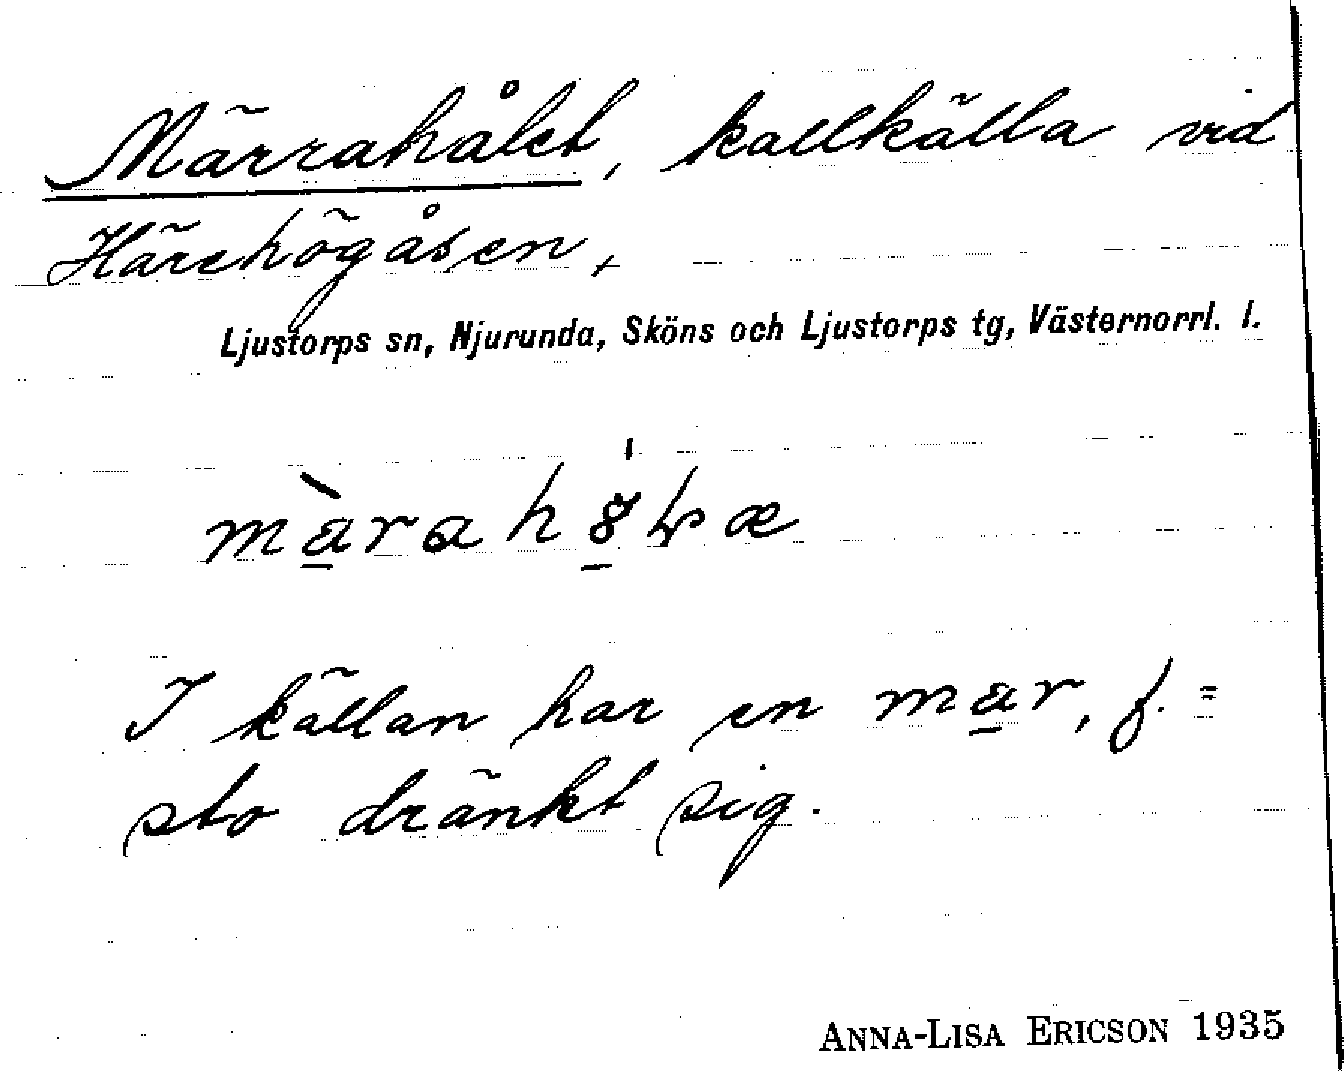 Märrahålet, kallkälla vid
Härehögåsen,
Ljustorps sn, Njurunda, Sköns och Ljustorps tg, Västernorrl. l.
I källan har en mar, f. =
sto dränkt sig.
ANNA-LISA ERICSON 1935